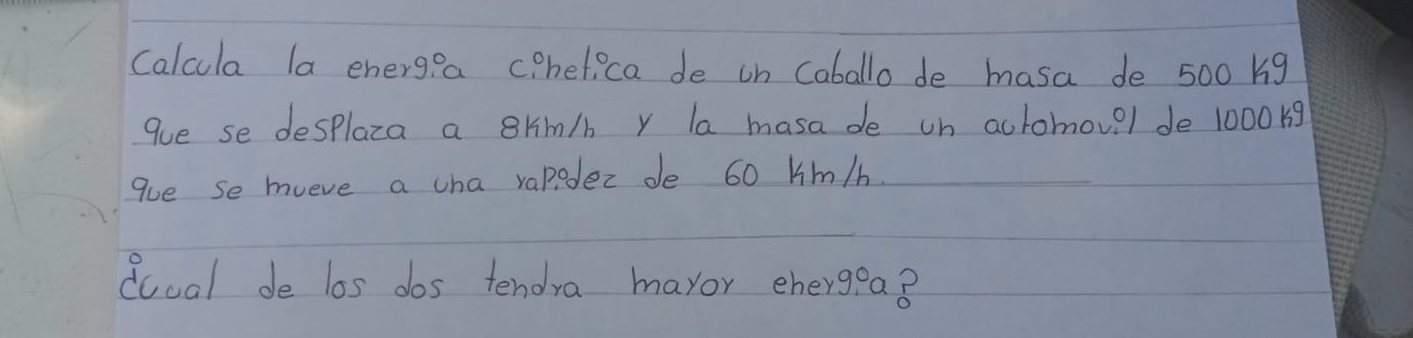 Calcula la energia cinetica de un caballo de masa de 500 kg
que se desplaza a 8km/h y la masa de un automovil de 1000 kg
que se mueve a una rapidez de 60 km/h.
¿cual de los dos tendra mayor energia?